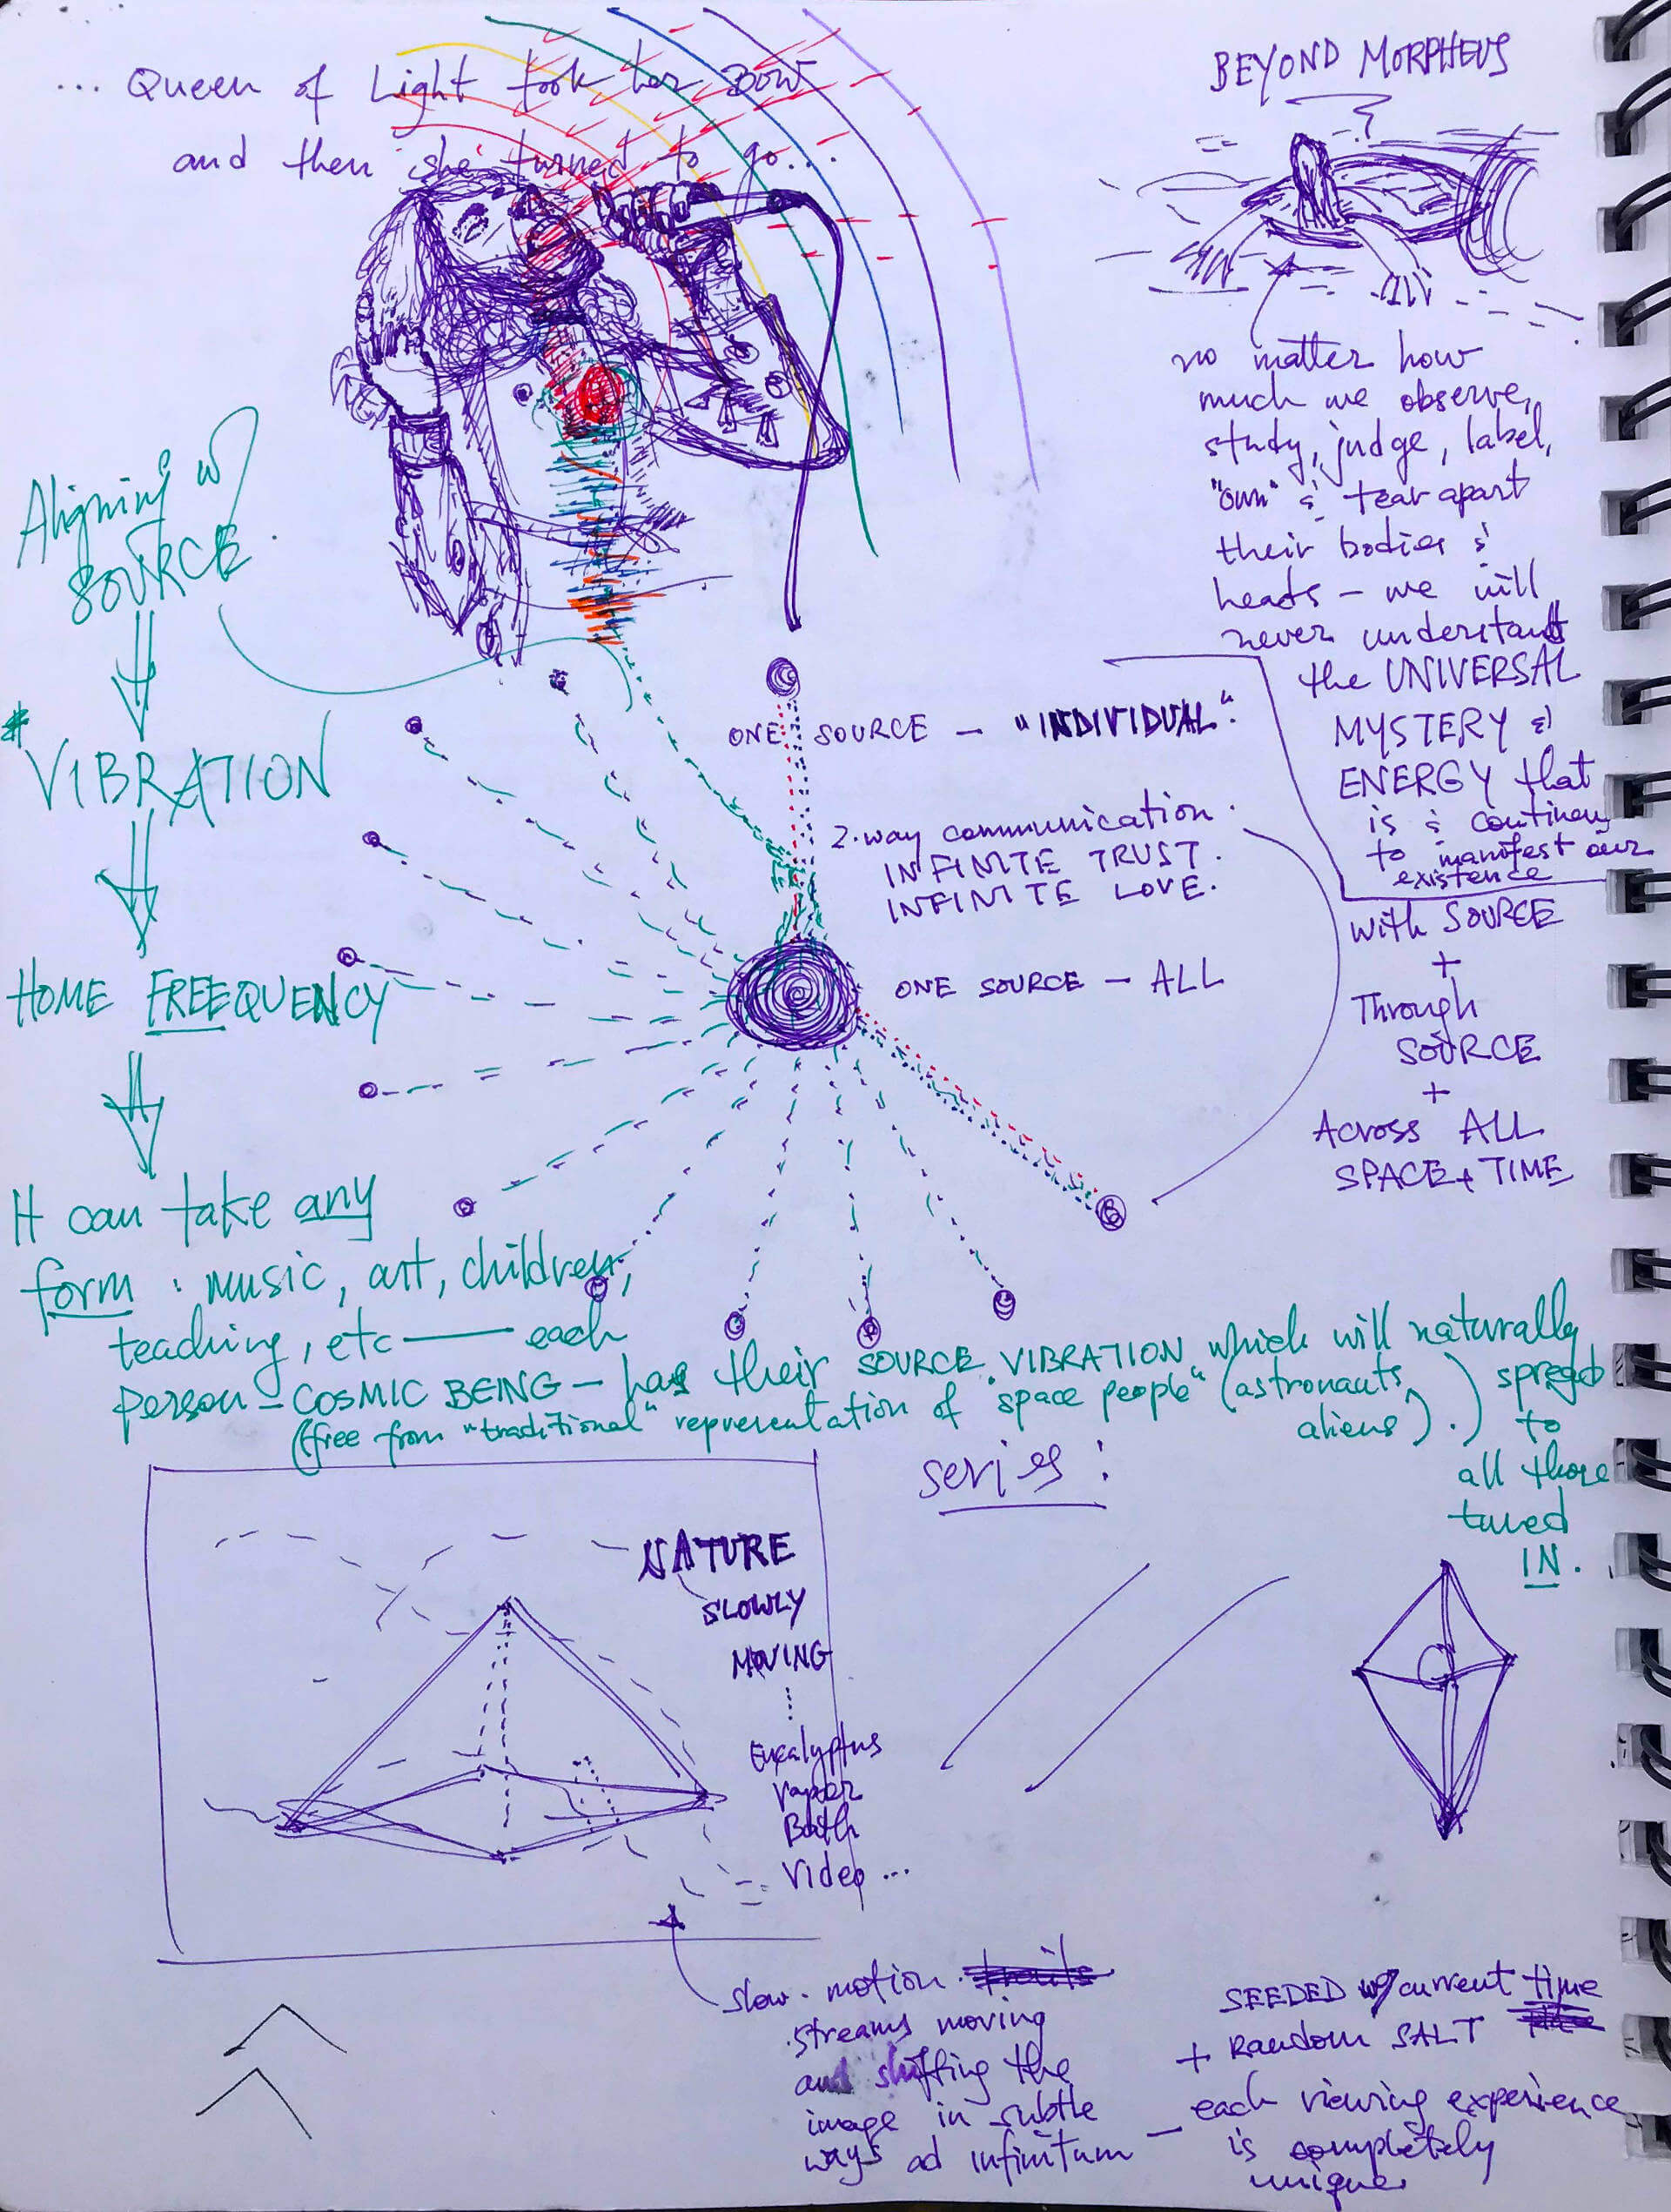 ... Queen of Light took her Bow
and then she turned to go...
BEYOND MORPHEUS
no matter how
much we observe,
study, judge, label,
"own" & tear apart
their bodies &
heads — we will
never understand
the UNIVERSAL
MYSTERY &
ENERGY that
is & continues
to manifest our
existence
Aligning w/
SOURCE.
* VIBRATION
HOME FREEQUENCY
It can take any
form : music, art, children,
teaching, etc — each
person — COSMIC BEING — has their SOURCE VIBRATION which will naturally
(free from "traditional" representation of "space people" (astronauts,
aliens).)
spread
to
all those
tuned
IN.
ONE SOURCE — "INDIVIDUAL".
2-way communication.
INFINITE TRUST.
INFINITE LOVE.
ONE SOURCE — ALL
with SOURCE
+
Through
SOURCE
+
Across ALL
SPACE + TIME
series :
NATURE
SLOWLY
MOVING
Eucalyptus
vapor
Bath
Video ...
slow-motion
streams moving
and shifting the
image in subtle
ways ad infinitum —
SEEDED w/ current time
+ Random SALT
each viewing experience
is completely
unique